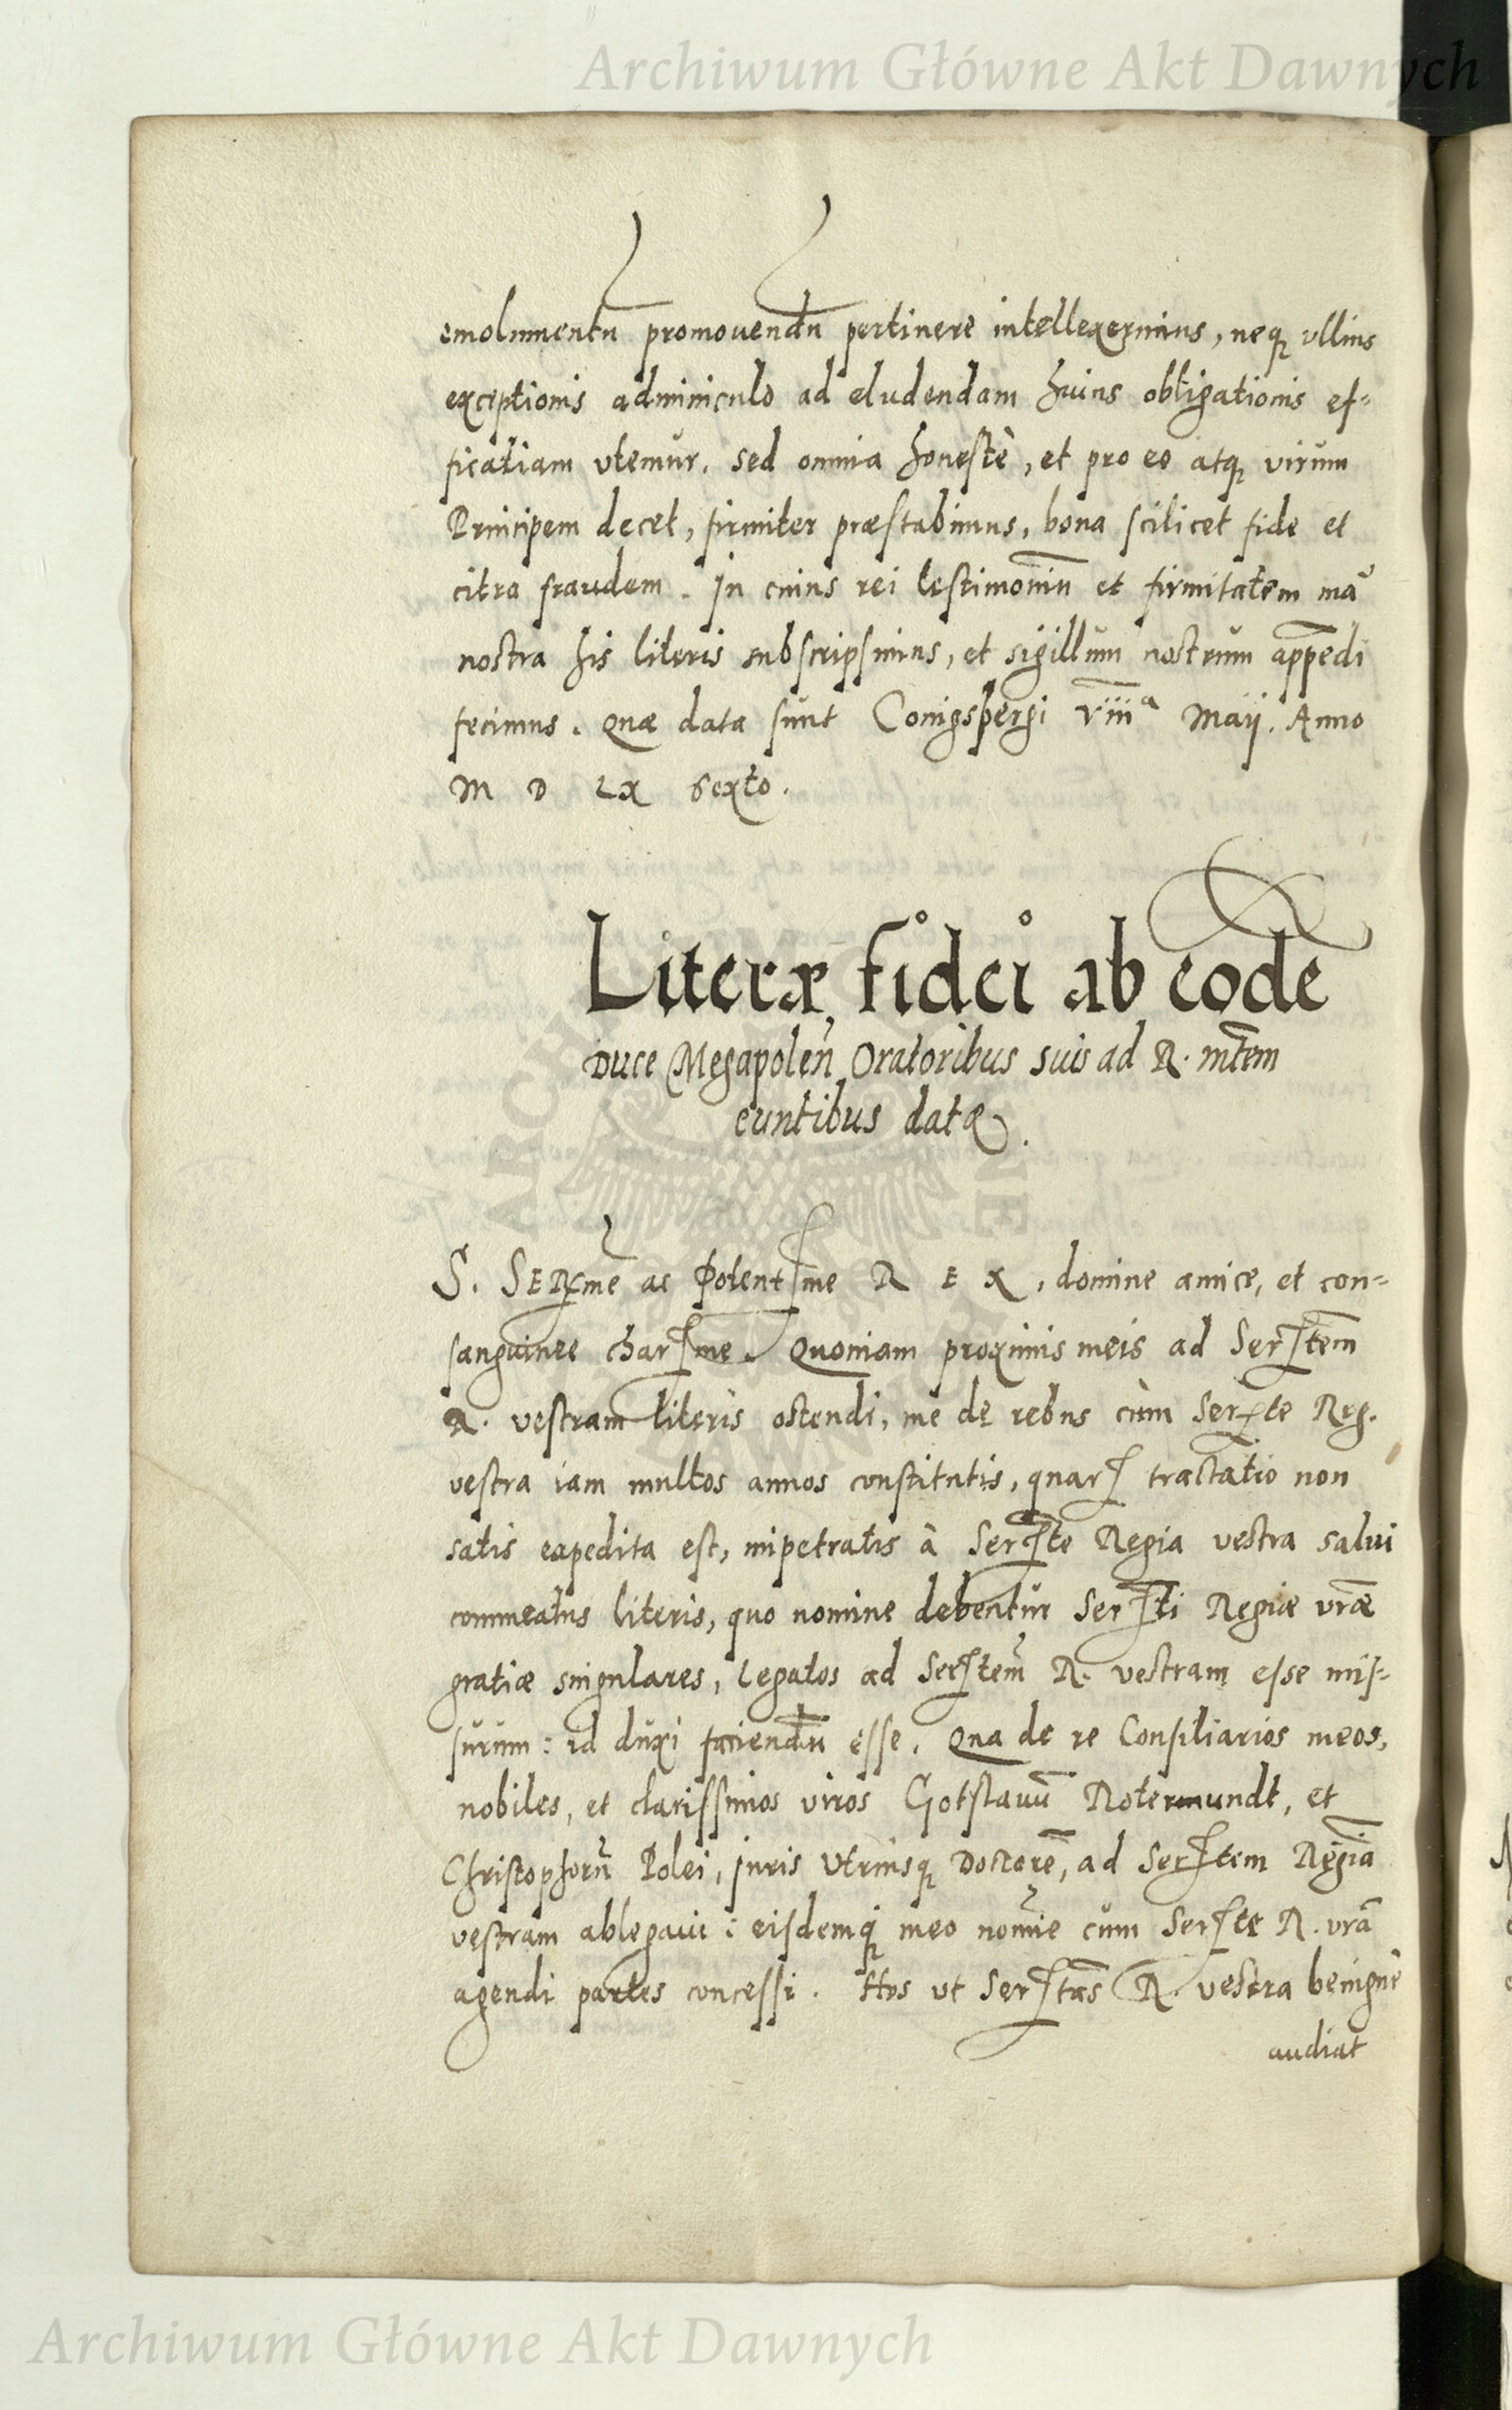 Archiwum Główne Akt Dawnych
emolumentū promouendū pertinere intellexerimus, neqꝫ vllius
exceptionis adminiculo ad eludendam huius obligationis ef-
ficatiam vtemur. Sed omnia honestè, et pro eo atqꝫ virum
Principem decet, firmiter præstabimus, bona scilicet fide et
citra fraudem. In cuius rei testimoniū et firmitatem mā
nostra his literis subscripsimus, et sigillum nostrum appēdi
fecimus. Quæ data sunt Conigspergi viiiª Maij. Anno
M D LX Sexto.
Literæ fidei ab eodē
Duce Megapoleñ Oratoribus suis ad R. mtem
euntibus datæ.
S. Serme ac Potentsme REX, domine amice, et con-
sanguinee charsme. Quoniam proximis meis ad Serstem
R. vestram literis ostendi, me de rebus cùm Serte Reg.
vestra iam multos annos constitutis, quarȝ tractatio non
satis expedita est, impetratis à Serste Regia vestra salui
commeatus literis, quo nomine debentur Sersti Regiæ vræ
gratiæ singulares, Legatos ad Serstem R. vestram esse mis-
surum: id duxi faciendū esse. Qua de re Consiliarios meos,
nobiles, et clarissimos viros Gotslauū Rotermundt, et
Christophorū Polei, Juris Vtriusqꝫ Doctorē, ad Serstem Regiā
vestram ablegaui: eisdemqꝫ meo nomīe cum Serste R. vrā
agendi partes concessi. Hos ut Serstas R. vestra benignè
audiat
Archiwum Główne Akt Dawnych